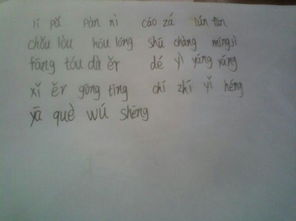 jí pò pàn nì cáo zá tán
chǒu lòu hóu lóng shū chàng míng jì
fāng tóu dà ěr dé yì yáng yáng
xǐ ěr gōng tīng chí zhī yǐ héng
yā què wú shēng